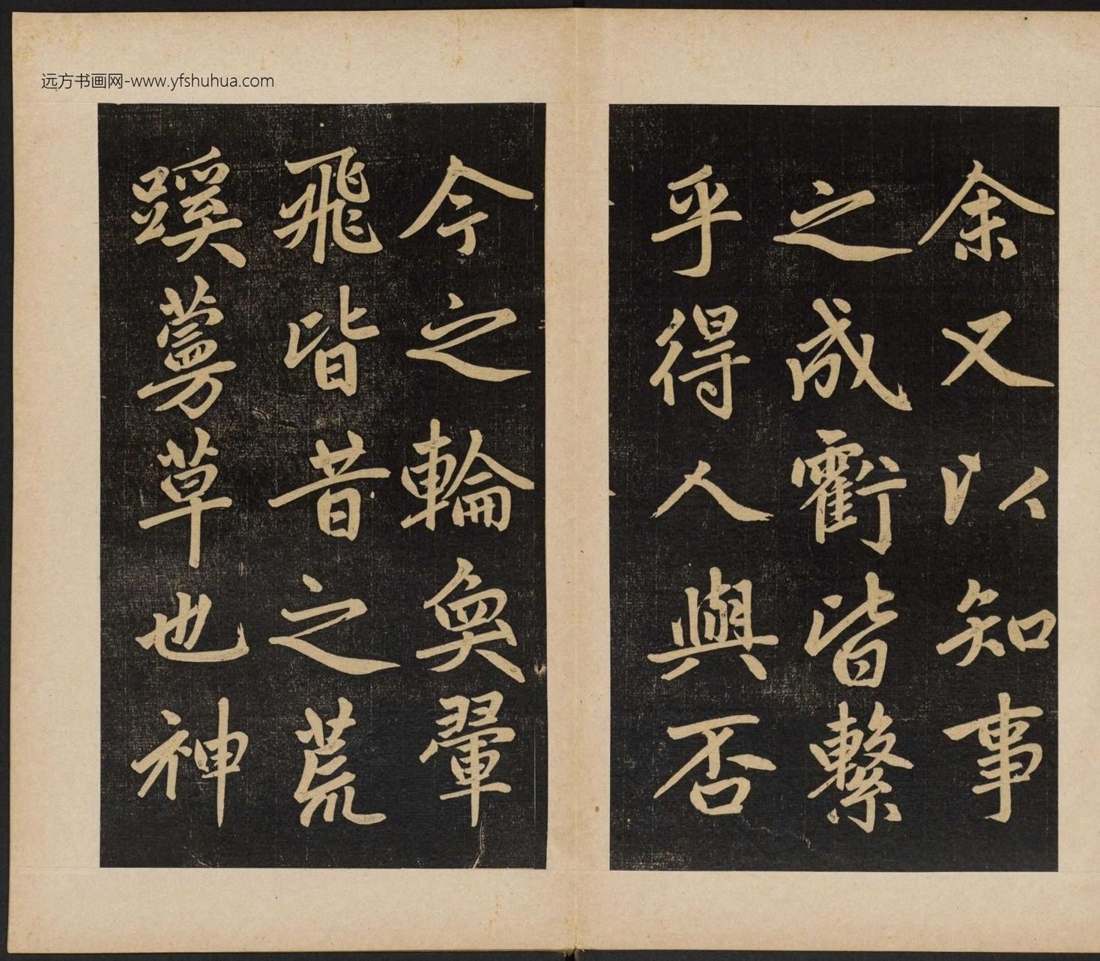 远方书画网-www.yfshuhua.com
余又以知事
之成虧皆繫
乎得人與否
今之輪奐翬
飛皆昔之荒
蹊蔓草也神